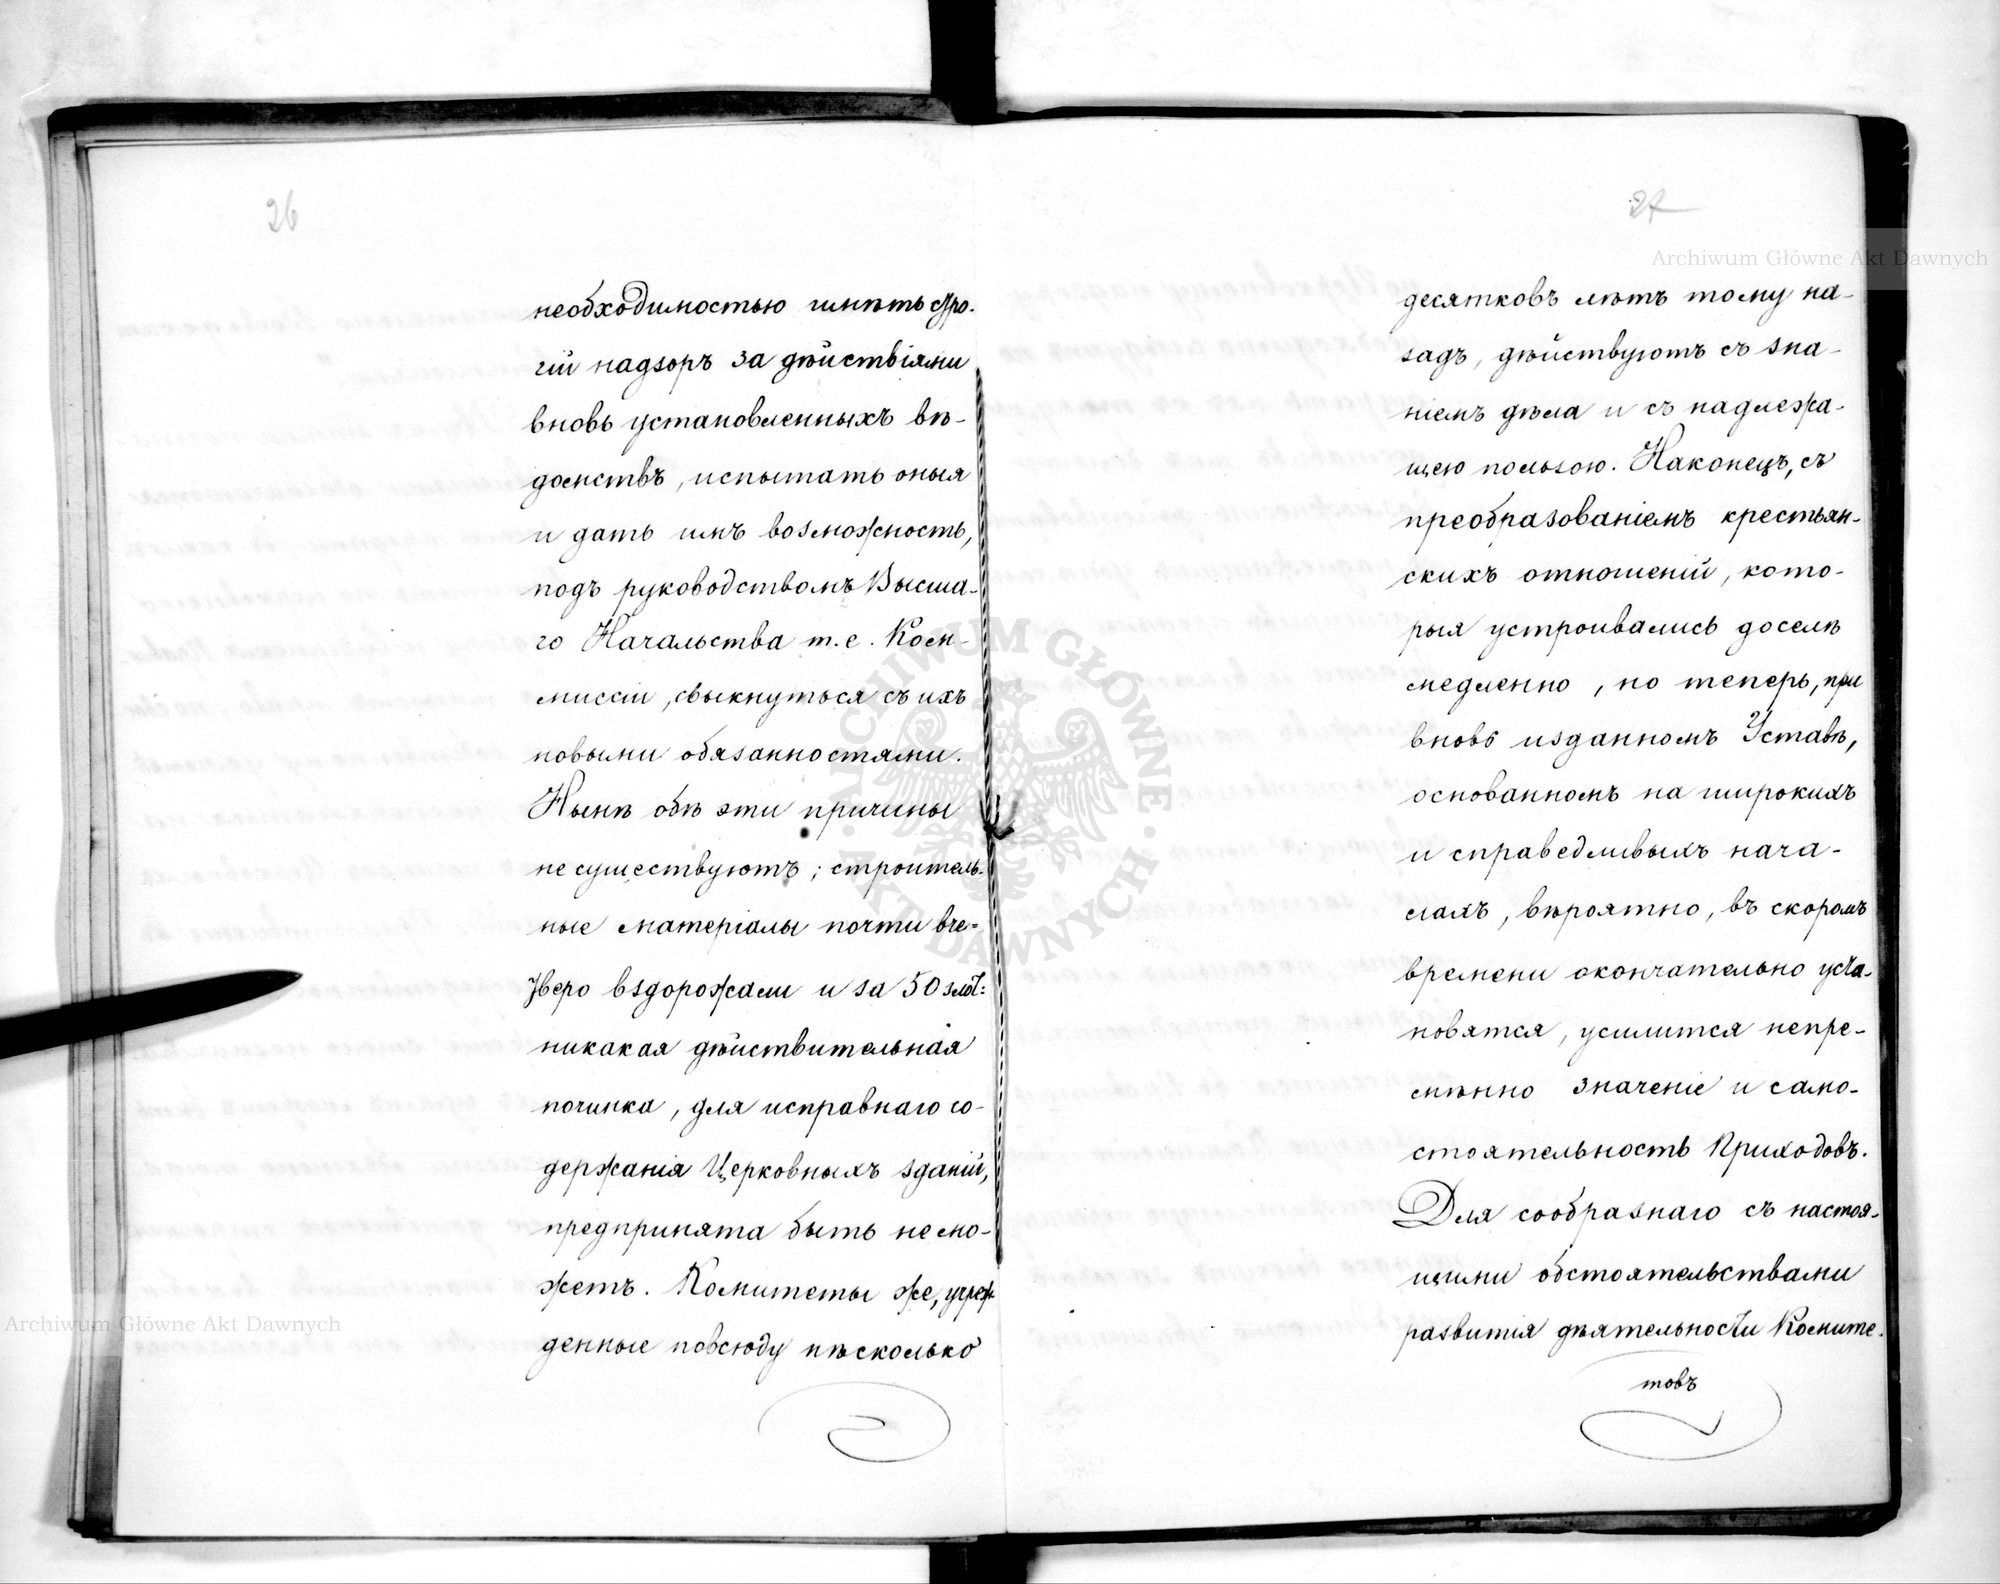 26
необходимостью имѣть стро-
гій надзоръ за дѣйствіями
вновь установленныхъ вѣ-
домствъ, испытать оныя
и дать имъ возможность,
подъ руководствомъ Высша-
го Начальства т. е. Ком-
миссіи, свыкнуться съ ихъ
новыми обязанностями.
Нынѣ обѣ эти причины
не существуютъ; строитель-
ные матеріалы почти вче-
тверо вздорожали и за 50 злот:
никакая дѣйствительная
починка, для исправнаго со-
держанія Церковныхъ зданій,
предпринята быть не мо-
жетъ. Комитеты же, учреж-
денные повсюду нѣсколько
27
десятковъ лѣтъ тому на-
задъ, дѣйствуютъ съ зна-
ніемъ дѣла и съ надлежа-
щею пользою. Наконецъ, съ
преобразованіемъ крестьян-
скихъ отношеній, кото-
рыя устроивались доселѣ
медленно, но теперь, при
вновь изданномъ Уставѣ,
основанномъ на широкихъ
и справедливыхъ нача-
лахъ, вѣроятно, въ скоромъ
времени окончательно уста-
новятся, усилится непре-
мѣнно значеніе и само-
стоятельность Приходовъ.
Для сообразнаго съ настоя-
щими обстоятельствами
развитія дѣятельности Комите-
товъ
Archiwum Główne Akt Dawnych
Archiwum Główne Akt Dawnych
ARCHIWUM GŁÓWNE AKT DAWNYCH